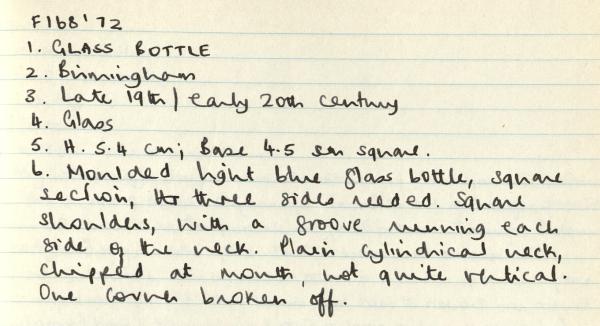 F168'72
1. GLASS BOTTLE
2. Birmingham
3. Late 19th / early 20th century
4. Glass
5. H. 5.4 cm; Base 4.5 cm square.
6. Moulded light blue glass bottle, square
section, three sides reeded. Square
shoulders, with a groove running each
side of the neck. Plain cylindrical neck,
chipped at mouth, not quite vertical.
One corner broken off.